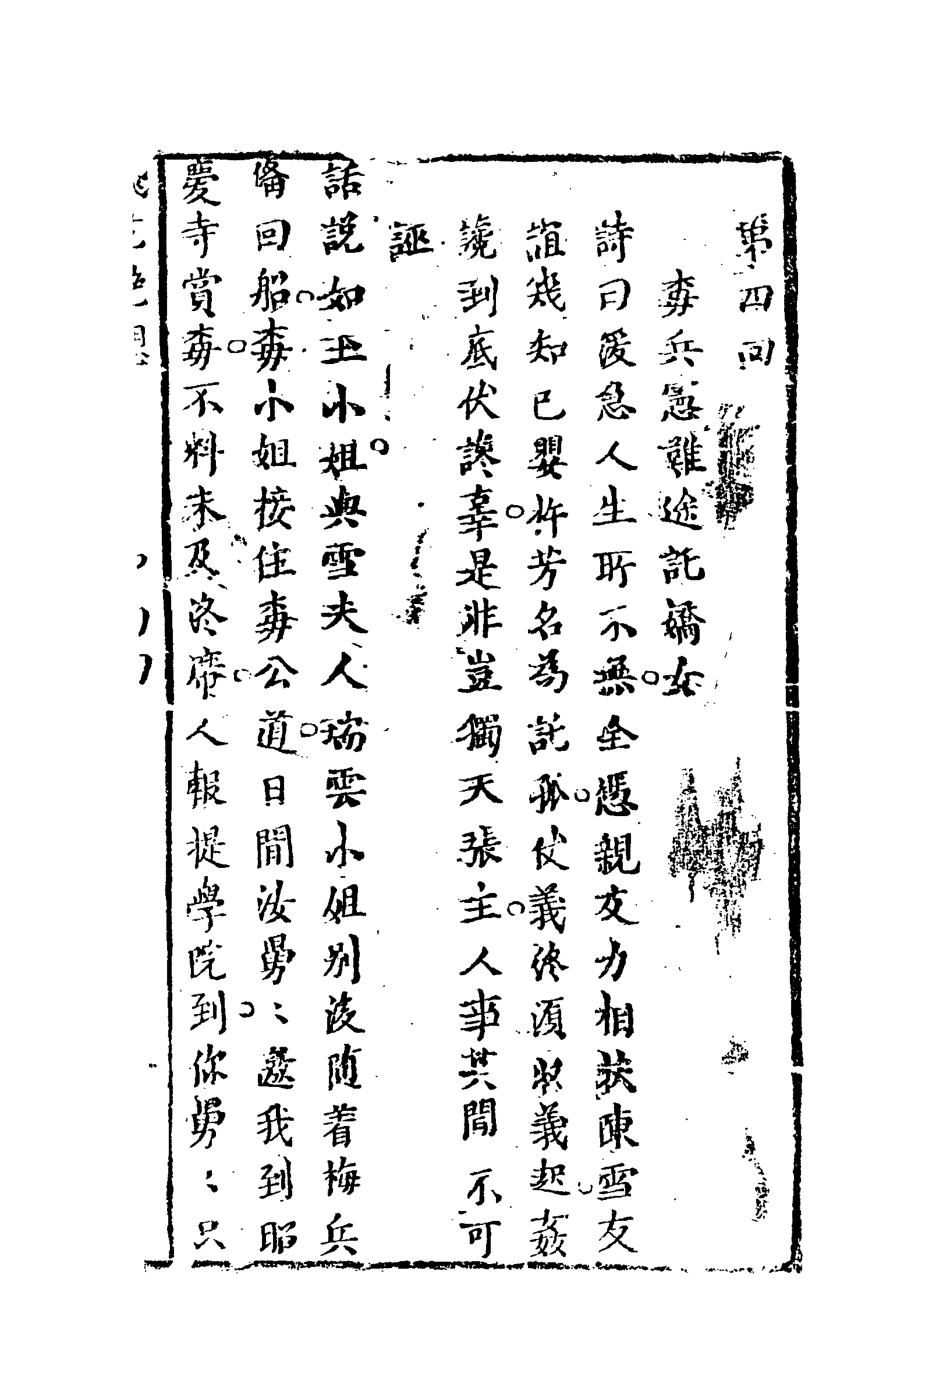 第四回
毐兵憲難途託嬌女
詩曰緩急人生所不無全憑親友力相扶陳雪友
誼幾知已嬰杵芳名為託孤仗義終須收義起姦
讒到底伏讒辜是非豈獨天張主人事其間不可
誣
話說如玉小姐與雪夫人瑞雲小姐別後隨着梅兵
偹回船毐小姐接住毐公道日間汝舅〻邀我到昭
慶寺賞毐不料未及終席人報提學院到你舅〻只